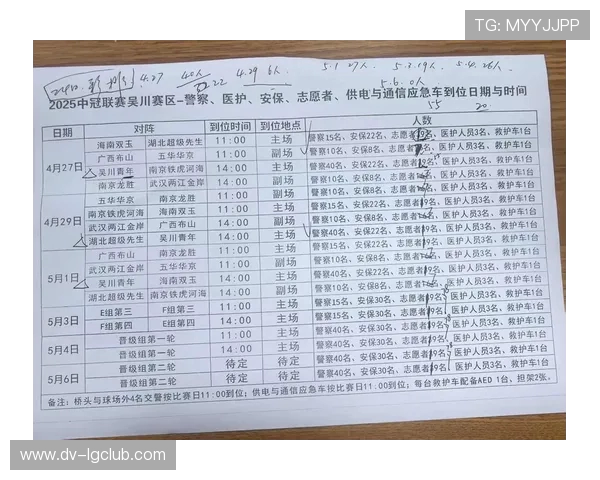 TG: MYYJJPP
4.27 40人 22 4.29 6人 5.1 27人 5.3 19人 5.4 26人
5.6 0人
2025中冠联赛吴川赛区-警察、医护、安保、志愿者、供电与通信应急车到位日期与时间
15 20
日期 对阵 到位时间 到位地点 人数
海南双玉 湖北超级先生 11:00 主场 警察15名、安保22名、志愿者19名、医护人员3名、救护车1台
广西布山 五华华京 11:00 副场 警察10名、安保8名、志愿者名、医护人员3名、救护车1台
4月27日 吴川青年 南京铁虎河海 14:00 主场 警察40名、安保22名、志愿者名、医护人员3名、救护车1台
南京龙胜 武汉两江金岸 14:00 副场 警察10名、安保8名、志愿者名、医护人员3名、救护车1台
五华华京 南京龙胜 11:00 副场 警察10名、安保8名、志愿者名、医护人员3名、救护车1台
4月29日 南京铁虎河海 海南双玉 11:00 主场 警察15名、安保22名、志愿者19名、医护人员3名、救护车1台
武汉两江金岸 广西布山 14:00 副场 警察10名、安保8名、志愿者名、医护人员3名、救护车1台
湖北超级先生 吴川青年 14:00 主场 警察40名、安保22名、志愿者19名、医护人员3名、救护车1台
广西布山 南京龙胜 11:00 主场 警察15名、安保22名、志愿者名、医护人员3名、救护车1台
5月1日 武汉两江金岸 五华华京 11:00 副场 警察10名、安保8名、志愿者名、医护人员3名、救护车1台
吴川青年 海南双玉 14:00 主场 警察40名、安保22名、志愿者19名、医护人员3名、救护车1台
湖北超级先生 南京铁虎河海 14:00 副场 警察10名、安保8名、志愿者名、医护人员3名、救护车1台
5月3日 E组第三 F组第三 11:00 主场 警察15名、安保30名、志愿者19名、医护人员3名、救护车1台
F组第四 E组第四 14:00 主场 警察40名、安保30名、志愿者19名、医护人员3名、救护车1台
5月4日 晋级组第一轮 11:00 主场 警察40名、安保30名、志愿者19名、医护人员3名、救护车1台
晋级组第一轮 14:00 主场 警察40名、安保30名、志愿者19名、医护人员3名、救护车1台
5月6日 晋级组第二轮 待定 待定 警察40名、安保30名、志愿者19名、医护人员3名、救护车1台
晋级组第二轮 待定 待定 警察40名、安保30名、志愿者19名、医护人员3名、救护车1台
备注：桥头与球场外4名交警按比赛日11:00到位；供电与通信应急车按比赛日11:00到位；每台救护车配备AED 1台，担架2张。
www.dv-lgclub.com